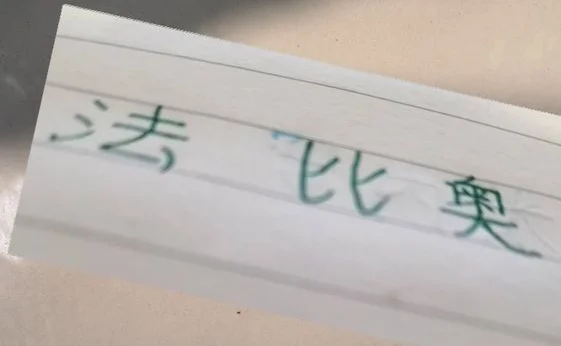 法 比 奥